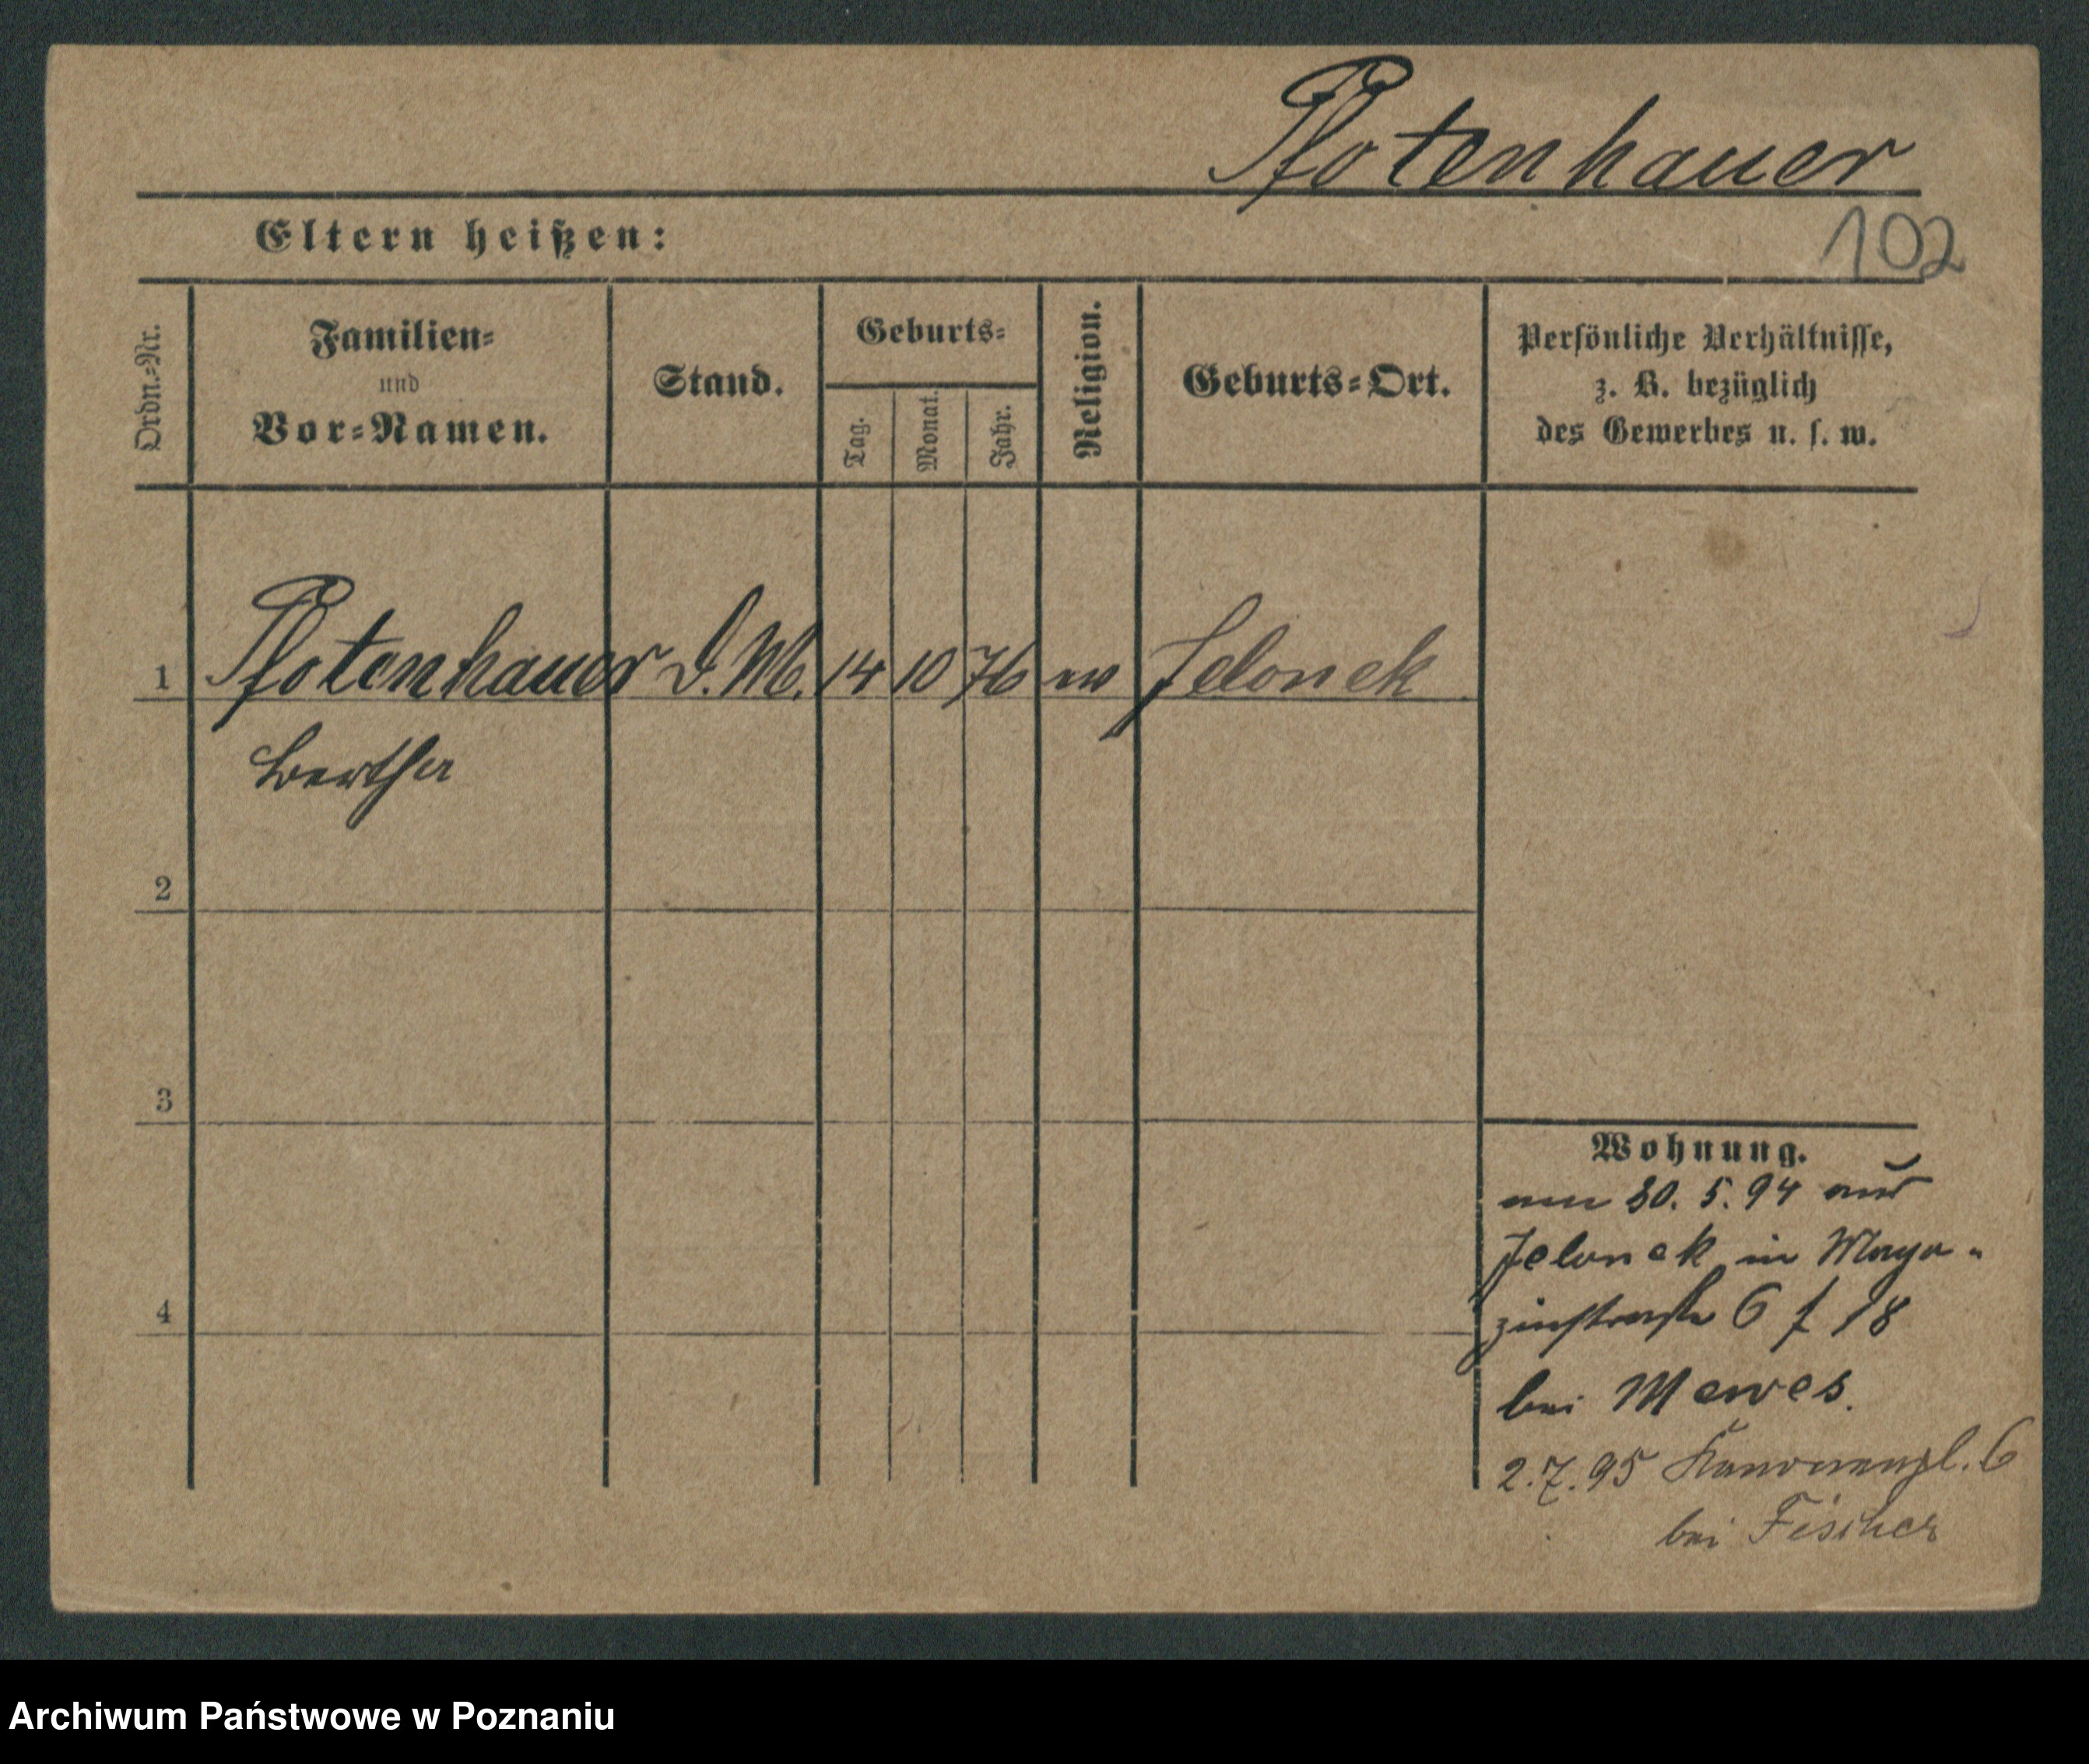 Pfotenhauer
Eltern heißen:
102
Ordn.-Nr.
Familien-
und
Vor-Namen.
Stand.
Geburts-
Tag.
Monat.
Jahr.
Religion.
Geburts-Ort.
Persönliche Verhältnisse,
z. B. bezüglich
des Gewerbes u. s. w.
1 Pfotenhauer D. M. 14 10 76 ev Jelonek
Bertha
2
3
4
Wohnung.
am 30. 5. 94 aus
Jelonek in Maga-
zinstraße 6 f 18
bei Mewes.
2.7.95 Kanonenpl. 6
bei Fischer
Archiwum Państwowe w Poznaniu